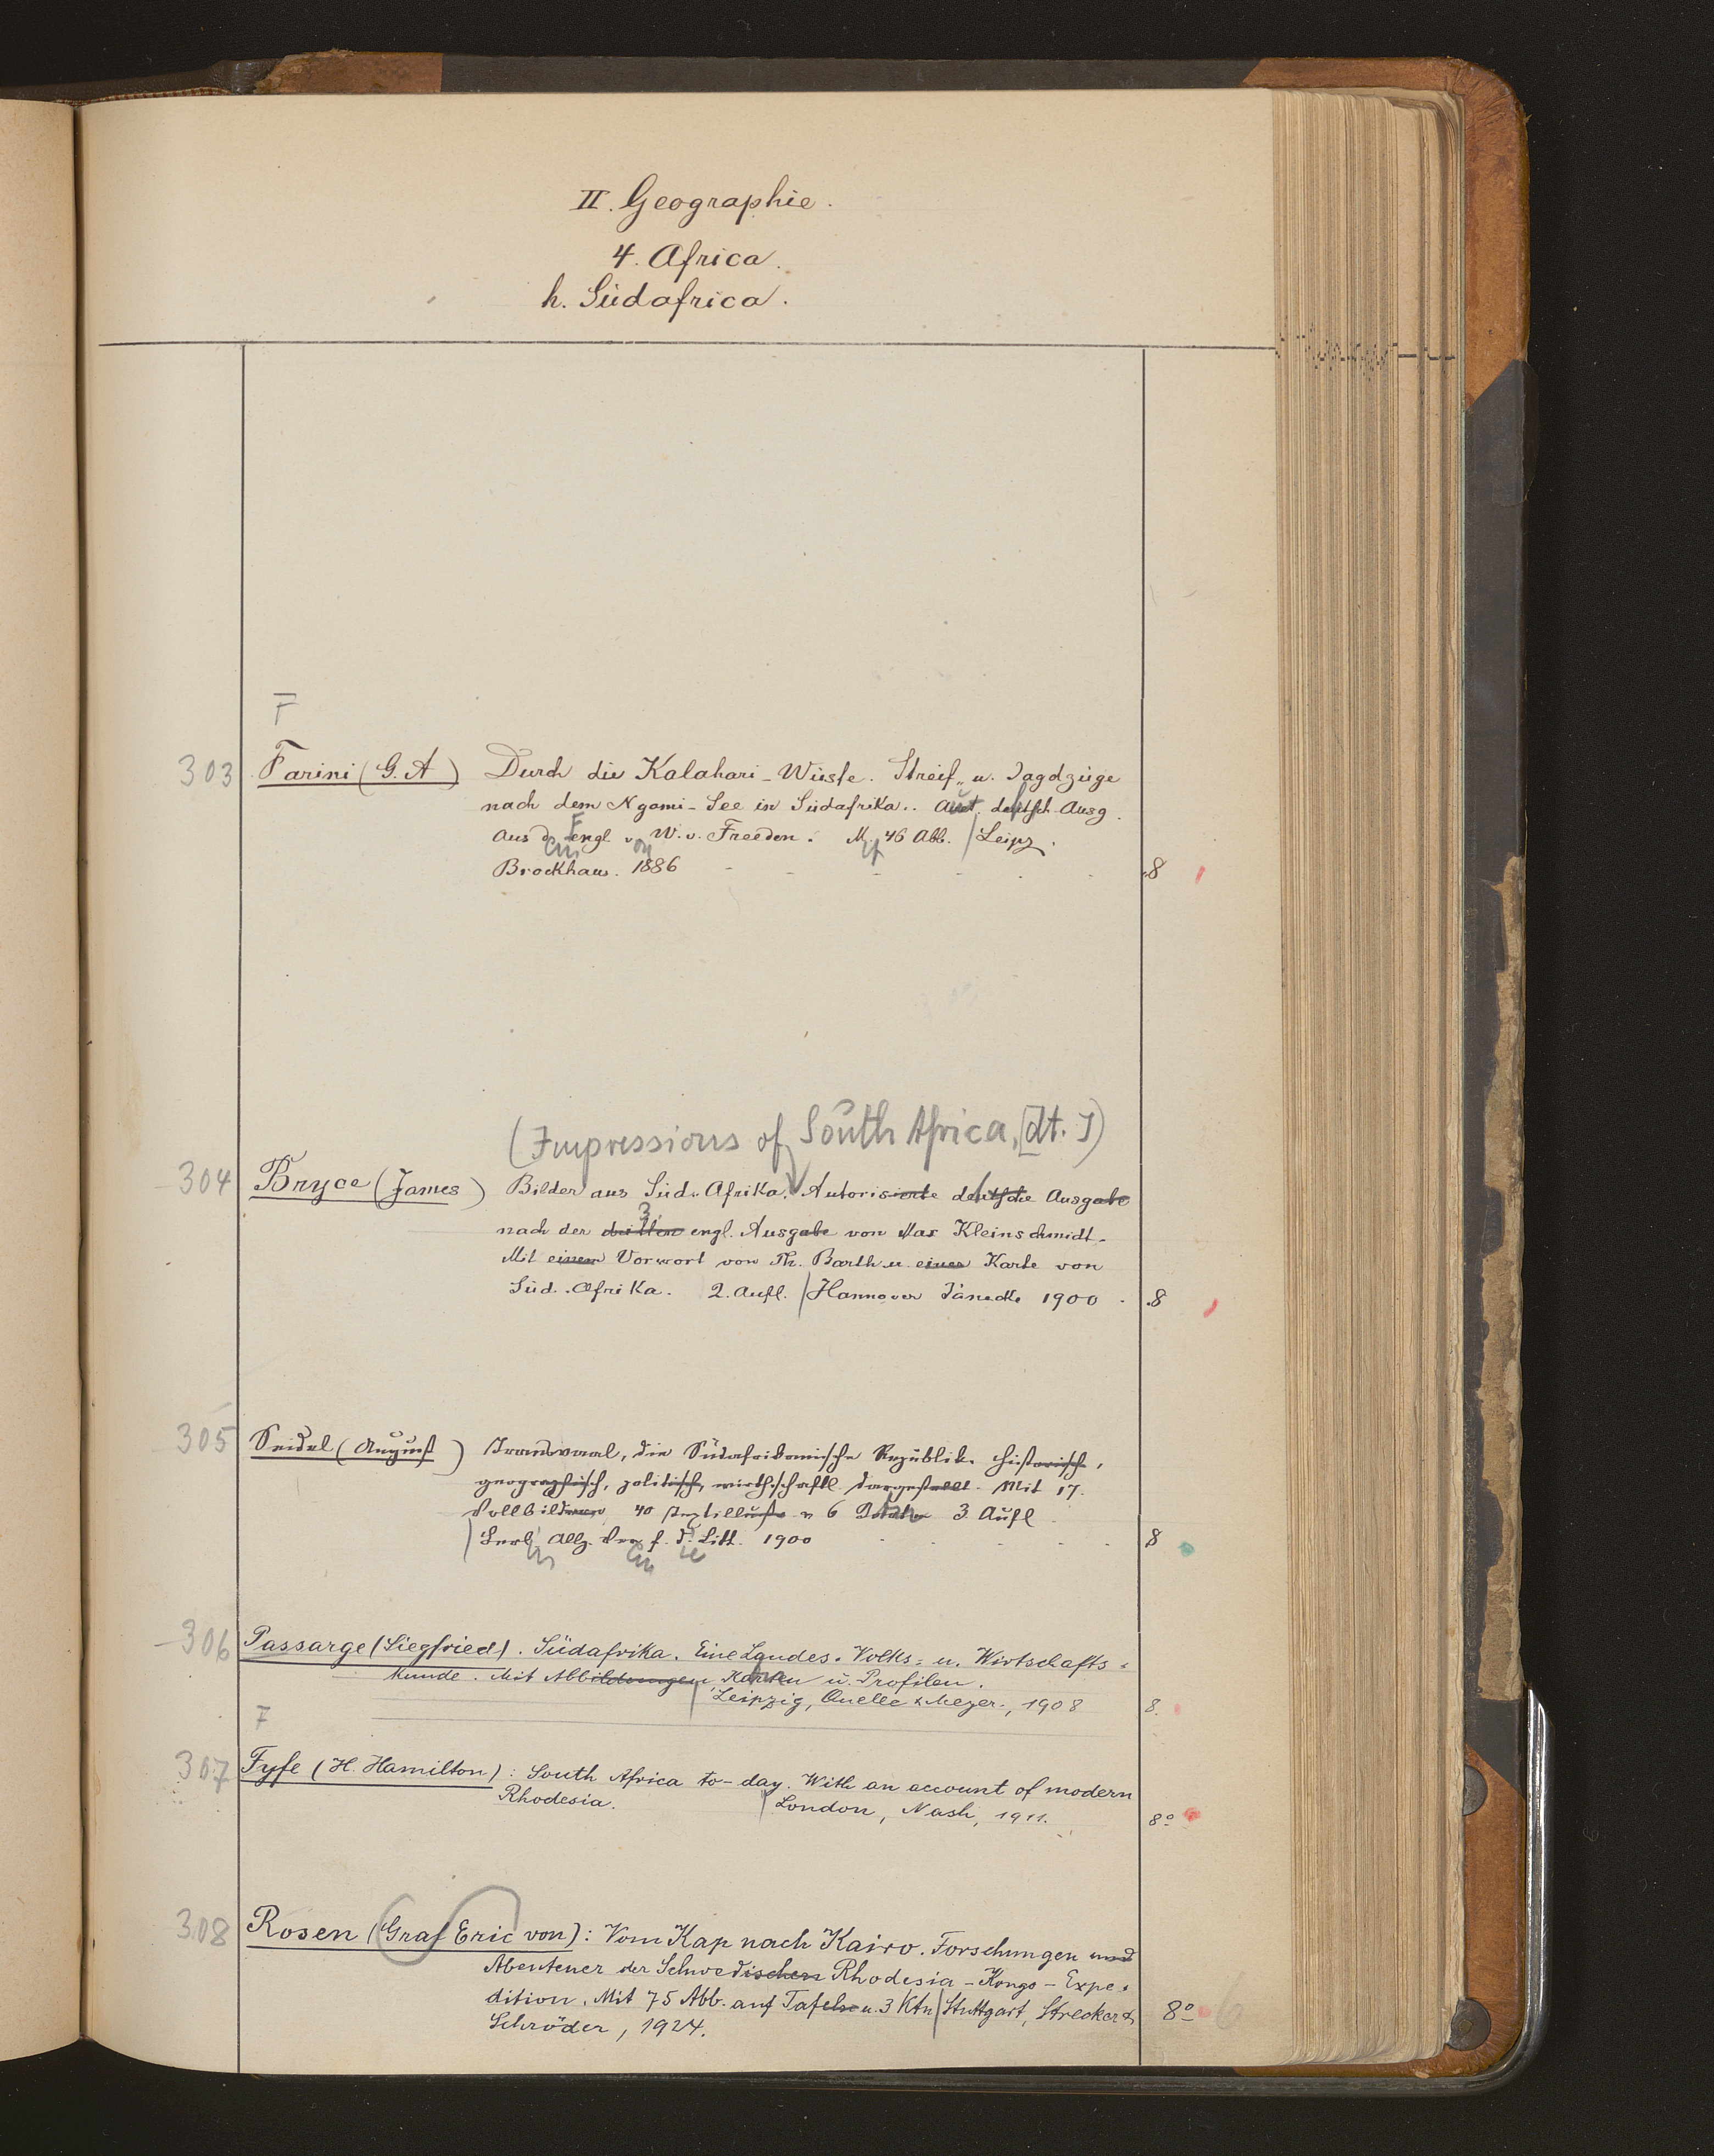 II. Geographie.
4. Africa.
h. Südafrica.
F
303 Farini (G. A) Durch die Kalahari-Wüste. Streif- u. Jagdzüge
nach dem Ngami-See in Südafrika.. Aut. deutsch. Ausg.
Aus d. engl. v. W. v. Freeden. M. 46 Abb. / Leipz.
Brockhaus. 1886 8
(Impressions of South Africa, [dt.])
304 Bryce (James) Bilder aus Süd-Afrika. Autorisierte deutsche Ausgabe
3.
nach der dritten engl. Ausgabe von Max Kleinschmidt.
Mit einem Vorwort von Th. Barth u. einer Karte von
Süd-Afrika. 2. Aufl. / Hannover Jänecke 1900 8
305 Seidel (August) Transvaal, die Südafrikanische Republik. historisch,
geographisch, politisch, wirthschaftl. dargestellt. Mit 17.
Vollbildern, 40 Textillustr. u 6 3. Aufl.
/ Berl. Allg. Ver. f. d. Litt. 1900 8
306 Passarge (Siegfried). Südafrika. Eine Landes- Volks- u. Wirtschafts-
kunde. Mit Abbildungen Karten u. Profilen.
/ Leipzig, Quelle & Meyer., 1908 8.
F
307 Fyfe (H. Hamilton): South Africa to-day. With an account of modern
Rhodesia. / London, Nash, 1911. 8º
308 Rosen (Graf Eric von): Vom Kap nach Kairo. Forschungen und
Abenteuer der Schwedischen Rhodesia-Kongo-Expe-
dition. Mit 75 Abb. auf Tafeln u. 3 Ktn / Stuttgart, Strecker &
Schröder, 1924. 8º